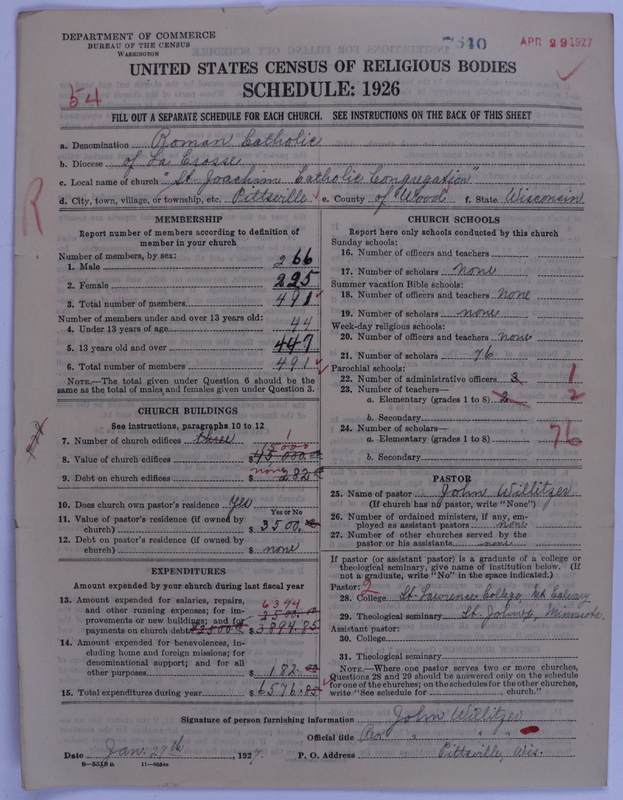 DEPARTMENT OF COMMERCE
BUREAU OF THE CENSUS
WASHINGTON
APR 29 1927
UNITED STATES CENSUS OF RELIGIOUS BODIES
SCHEDULE: 1926
54
FILL OUT A SEPARATE SCHEDULE FOR EACH CHURCH. SEE INSTRUCTIONS ON THE BACK OF THIS SHEET
a. Denomination Roman Catholic
b. Diocese of La Crosse
c. Local name of church "St. Joachim Catholic Congregation"
d. City, town, village, or township, etc. Pittsville e. County of Wood f. State Wisconsin
R
MEMBERSHIP
Report number of members according to definition of member in your church
Number of members, by sex:
1. Male 266
2. Female 225
3. Total number of members 491
Number of members under and over 13 years old:
4. Under 13 years of age 44
5. 13 years old and over 447
6. Total number of members 491
NOTE.—The total given under Question 6 should be the same as the total of males and females given under Question 3.
CHURCH BUILDINGS
See instructions, paragraphs 10 to 12
7. Number of church edifices three 1
8. Value of church edifices $
9. Debt on church edifices none $
10. Does church own pastor's residence Yes
Yes or No
11. Value of pastor's residence (if owned by church) $ 3500.
12. Debt on pastor's residence (if owned by church) $ none
EXPENDITURES
Amount expended by your church during last fiscal year
13. Amount expended for salaries, repairs, and other running expenses; for improvements or new buildings; and for payments on church debt 6394 $ 3894.85
14. Amount expended for benevolences, including home and foreign missions; for denominational support; and for all other purposes $ 182.
15. Total expenditures during year $ 6576.85
CHURCH SCHOOLS
Report here only schools conducted by this church
Sunday schools:
16. Number of officers and teachers
17. Number of scholars none
Summer vacation Bible schools:
18. Number of officers and teachers none
19. Number of scholars none
Week-day religious schools:
20. Number of officers and teachers none
21. Number of scholars 76
Parochial schools:
22. Number of administrative officers 3 1
23. Number of teachers—
a. Elementary (grades 1 to 8) 2 2
b. Secondary
24. Number of scholars—
a. Elementary (grades 1 to 8) 76
b. Secondary
PASTOR
25. Name of pastor John Willitzer
(If church has no pastor, write "None")
26. Number of ordained ministers, if any, employed as assistant pastors none
27. Number of other churches served by the pastor or his assistants none
If pastor (or assistant pastor) is a graduate of a college or theological seminary, give name of institution below. (If not a graduate, write "No" in the space indicated.)
Pastor: 2
28. College St. Lawrence College, Mt Calvary
29. Theological seminary St. John's, Minnesota.
Assistant pastor:
30. College
31. Theological seminary
NOTE.—Where one pastor serves two or more churches, Questions 28 and 29 should be answered only on the schedule for one of the churches; on the schedules for the other churches, write "See schedule for church."
Signature of person furnishing information John Willitzer
Official title Rev. " "
Date Jan. 27th, 1927. P. O. Address Pittsville, Wis.